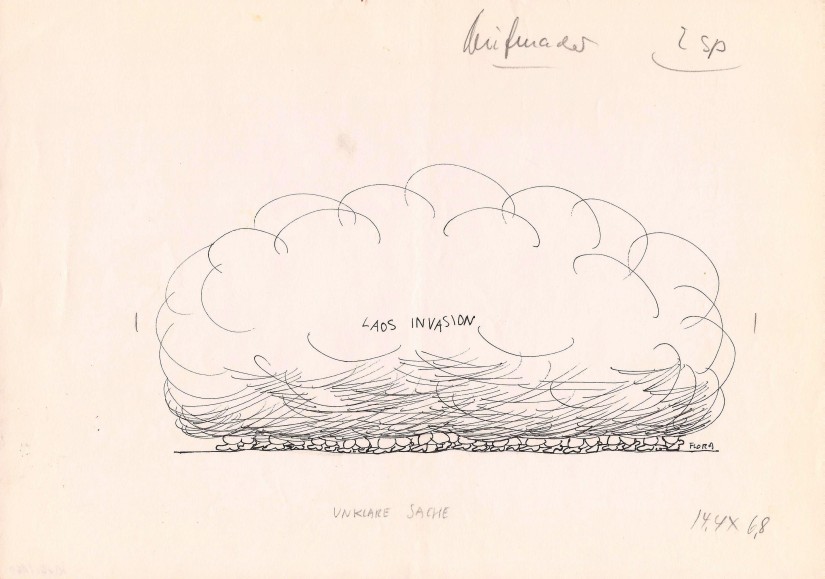 2 sp
LAOS INVASION
FLORA
UNKLARE SACHE
14,4X 6,8